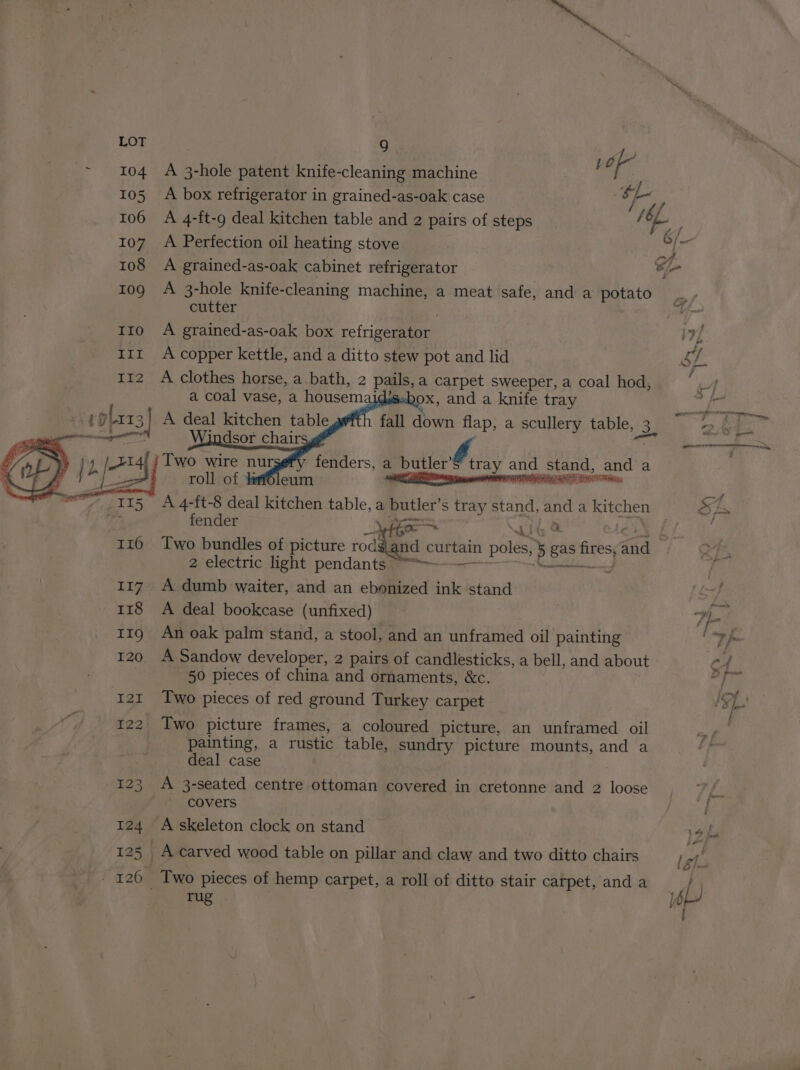 LOT 9
104 A 3-hole patent knife-cleaning machine
105 A box refrigerator in grained-as-oak case
106 A 4-ft-9 deal kitchen table and 2 pairs of steps
107 A Perfection oil heating stove 6/-
108 A grained-as-oak cabinet refrigerator
109 A 3-hole knife-cleaning machine, a meat safe, and a potato
cutter
110 A grained-as-oak box refrigerator
111 A copper kettle, and a ditto stew pot and lid
112 A clothes horse, a bath, 2 pails, a carpet sweeper, a coal hod,
a coal vase, a housemaid's box, and a knife tray
113 A deal kitchen table with fall down flap, a scullery table, 3
Windsor chairs
114 Two wire nursery fenders, a butler's tray and stand, and a
roll of linoleum
115 A 4-ft-8 deal kitchen table, a butler's tray stand, and a kitchen
fender
116 Two bundles of picture rods and curtain poles, 5 gas fires, and
2 electric light pendants
117 A dumb waiter, and an ebonized ink stand
118 A deal bookcase (unfixed)
119 An oak palm stand, a stool, and an unframed oil painting
120 A Sandow developer, 2 pairs of candlesticks, a bell, and about
50 pieces of china and ornaments, &c.
121 Two pieces of red ground Turkey carpet
122 Two picture frames, a coloured picture, an unframed oil
painting, a rustic table, sundry picture mounts, and a
deal case
123 A 3-seated centre ottoman covered in cretonne and 2 loose
covers
124 A skeleton clock on stand
125 A carved wood table on pillar and claw and two ditto chairs
126 Two pieces of hemp carpet, a roll of ditto stair carpet, and a
rug